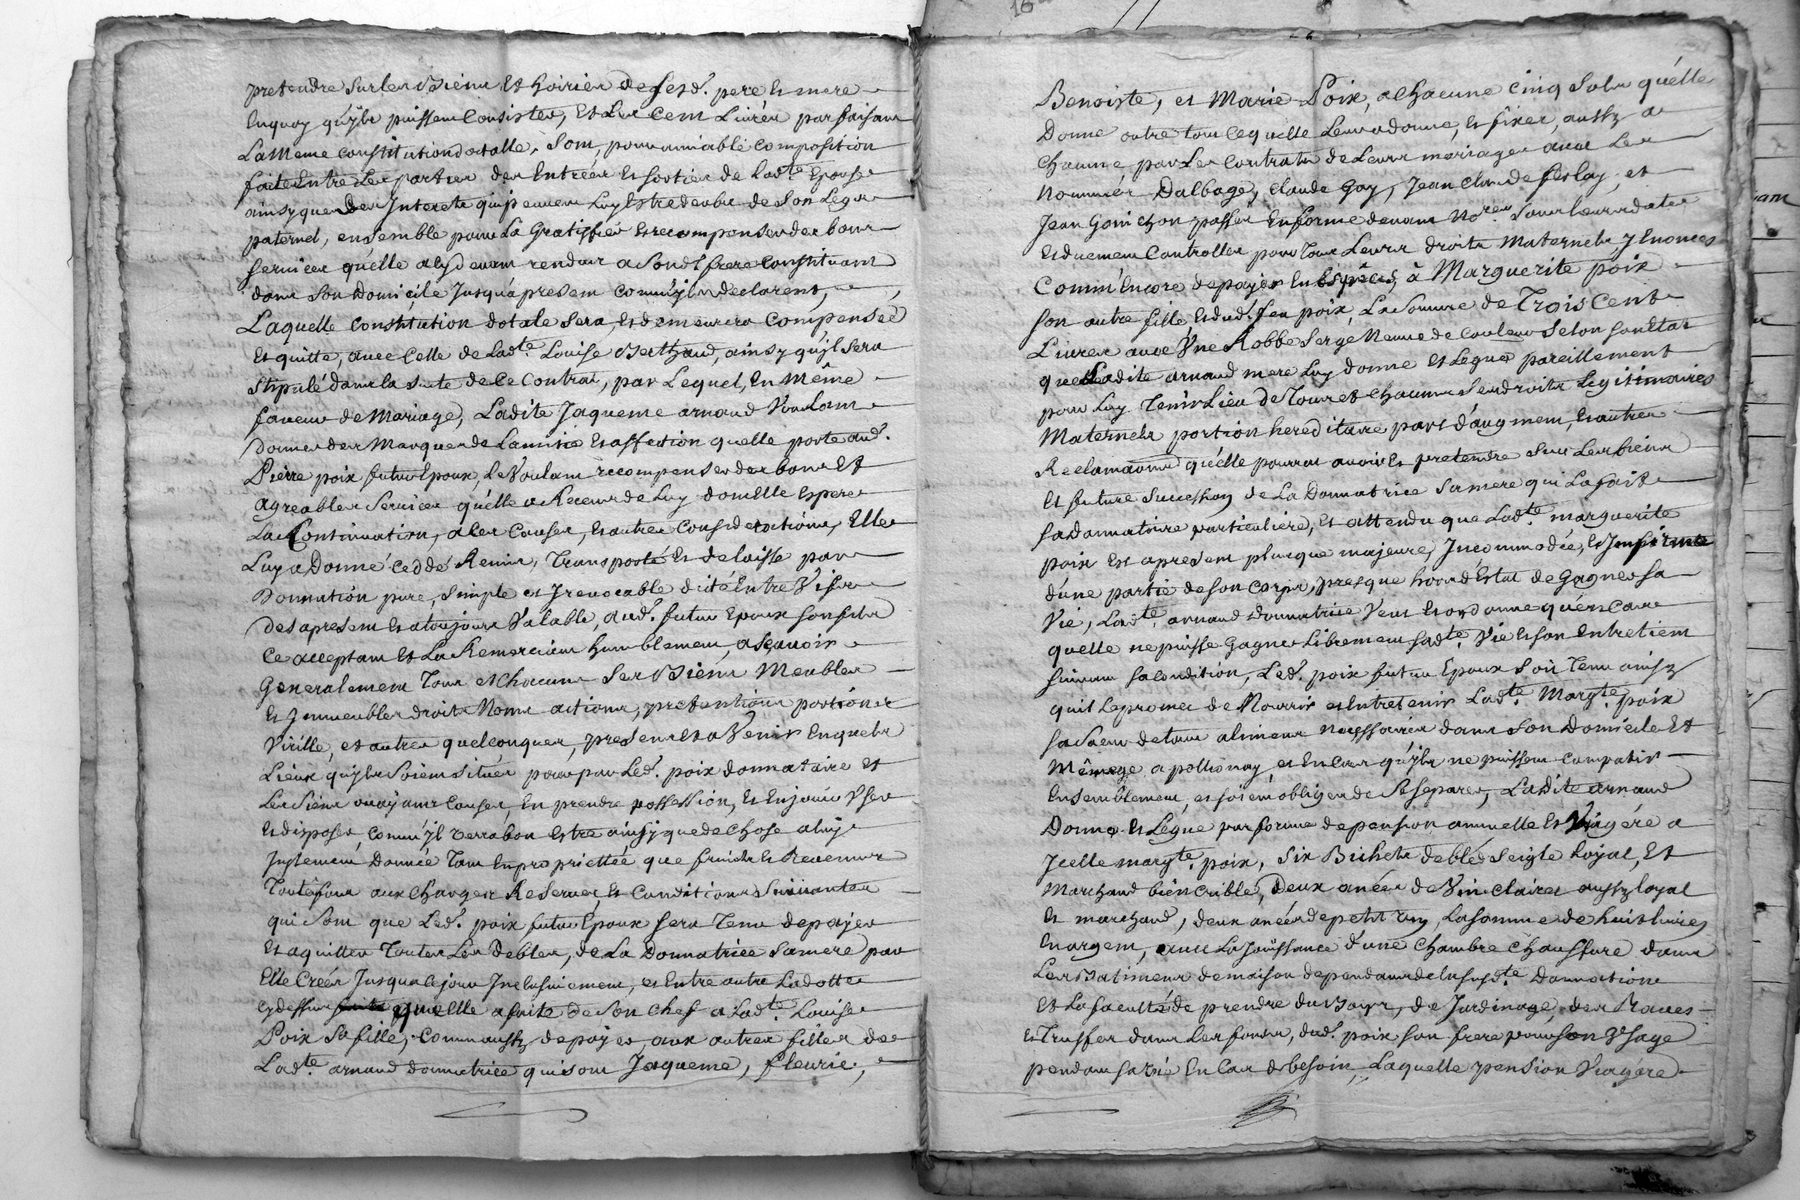 16
pretendre sur les Biens et hoiries de sesd. pere et mere
Enquoy qu'ils puissent Consister, Et Les Cent Livres parfaisant
La Meme constitution dotalle, Sont, pour amiable composition
faite Entre Les parties des Entrées Et sorties de Ladte Epouse
ainsy que des Interets qui peuvent Luy Estre deubs de Son Legat
paternel, ensemble pour La Gratifier et recompenser des bons
services qu'elle a cy devant rendus a Sond frere Constituant
dans Son Domicile Jusqu'a present comm'jls declarent,
Laquelle Constitution dotale Sera, et demeurera Compensée
Et quitte, avec Celle de Ladte Louise Berthaud, ainsy qu'jl Sera
Stipulé dans la suite de Ce Contrat, par Lequel, En Même
faveur de Mariage, Ladite Jaqueme arnaud Voulant
Donner des Marques de Lamitié Et affection quelle porte aud.
Pierre poix futur Epoux, Le Voulant recompenser des bons Et
agreables Services qu'elle a Receus de Luy dont Elle Espere
La Continuation, a Ces Causes, Et autres Considerations, Elle
Luy a Donné Cedde Remis, Transporté Et delaissé par
Donnation pure, Simple et Irevocable dité Entre Vifs
Des apresent Et a toujours Valable, aud. futur Epoux Son fils
Ce acceptant Et La Remerciant humblement, a Sçavoir
Generalement Tous et Chacuns Ses Biens Meubles
Et Immeubles droits Noms actions, pretentions portions
Virille, et autres quelconques, presens Et a Venir Enquels
Lieux qu'jls Soient Situés pour par Led. poix donnataire et
Les Siens ou ayant Causes, En prendre possession, Et En jouir User
Et disposer Comm'jl Verra bon Estre ainsy que de Chose a luy
Justement Donnée Tant En proprietée que fruits Et Revenus
Toutefois aux Charges Reserves Et Conditions Suivantes
qui Sont que Led. poix futur Epoux Sera Tenu de payer
Et aquitter Toutes Les Debtes, de La Donnatrice Sa mere par
Elle Créés Jusqua Ce jour Inclusivement, et Entre autre La dotte
cy dessus quelle a faite de Son Chef a Ladte Louise
Poix Sa fille, Comm aussy de payer aux autres filles de
Ladte arnaud donnatrice qui sont Jaqueme, fleurie,
Benoiste, et Marie Poix, a Chacune Cinq Sols qu'elle
Donne outre tout Ce quelle Leur a donné, et fixer, aussy a
Chacune par Les Contrats de Leurs mariages avec Les
Nommés Dalbage, Claude Gay, Jean Claude ferlay, et
Jean Gonichon passés En forme devant Nores Sous leurs dates
Et duement Controllés pour Tous Leurs droits Maternels y Enoncés
Comm'Encore de payer En Especes, à Marguerite poix
Son autre fille, Et dud. feu poix, La Somme de Trois Cents
Livres avec Une Robbe Serge Neuve de Couleur Selon Son Etat
que Ladite arnaud mere Luy donne Et Legue pareillement
pour Luy Tenir Lieu de Tous et Chacuns Ses droits Legitimaires
Maternels portion hereditaire part d'augment, Et autres
Reclamations qu'elle pourroit avoir Et pretendre Sur Les biens
Et future Succession de La Donnatrice Sa mere qui La fait
Sa donnatoire particuliere, Et attendu que Ladte marguerite
poix Est apresent plusque majeure, Incommodée, Et Infirme
d'une partie de Son Corps, presque hors d'Estat de Gagner Sa
Vie, Ladte arnaud donnatrice Veut Et ordonne qu'en Cas
quelle ne puisse Gagner Librement Sadte Vie Et Son Entretient
Suivant Sa Condition, Led. poix futur Epoux Soit Tenu ainsy
quil Le promet de Nourrir et Entretenir Ladte Margte poix
Sa Soeur de tous aliments necessaires dans Son Domicile Et
Ménage a pollionay, et En Cas qu'jls ne puissent Compatir
Ensemblement, et Soient obligés de Se Separer, Ladite arnaud
Donne Et Legue par forme de pension annuelle Et Viagére a
Jcelle margte poix, Six Bichets de bled Seigle Loyal, Et
Marchand bien Criblé, Deux anées de Vin Clairet aussy Loyal
Et marchand, deux anées de petit Vin, La Somme de huit Livres
En argent, avec La Jouissance d'une Chambre Chauffure dans
Les Batiments de maison dependants de La Susdte Donnation
Et La faculté de prendre du Bois, de Jardinage, des Raves
Et Truffes dans Les fonds, dud. poix Son frere pour son Usage
pendant Sa Vie En Cas de besoin, Laquelle pension Viagere